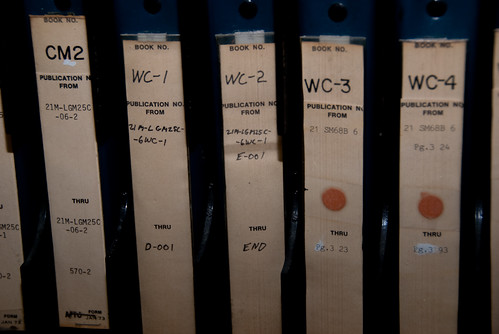 BOOK NO.
CM2
PUBLICATION NO.
FROM
21M-LGM25C
-06-2
THRU
21M-LGM25C
-06-2
570-2
FORM
BOOK NO.
WC-1
PUBLICATION NO.
FROM
21M-LGM25C-
-6WC-1
THRU
D-001
BOOK NO.
WC-2
PUBLICATION NO.
FROM
21M-LGM25C-
-6WC-1
E-001
THRU
END
BOOK NO.
WC-3
PUBLICATION N
FROM
21 SM68B 6
THRU
Pg.3 23
BOOK NO.
WC-4
PUBLICATION N
FROM
21 SM68B 6
Pg.3 24
THRU
Pg.3 93